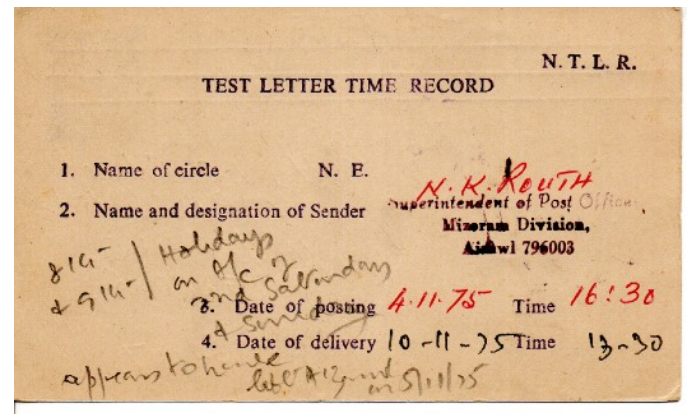 N. T. L. R.
TEST LETTER TIME RECORD
1. Name of circle N. E.
N. K. ROUTH
2. Name and designation of Sender Superintendent of Post Offices
Mizoram Division,
Aizawl 796003
Holidays
on A/c of
2nd Saturday
& Sunday
3. Date of posting 4.11.75 Time 16:30
4. Date of delivery 10-11-75 Time 13-30
appears to have
on 5/11/75